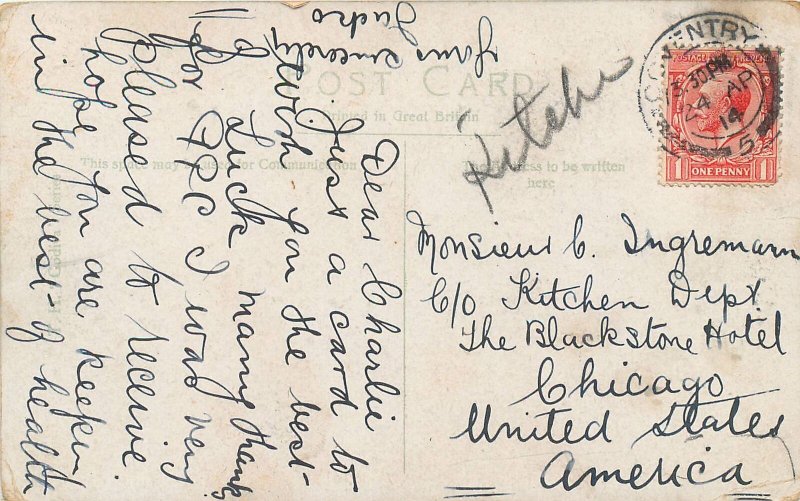 POST CARD
Printed in Great Britain
This space may be used for Communication
The Address to be written
here
Dear Charlie
Just a card to
wish you the best
of Luck many thanks
for P.P.C I was very
Pleased to receive
hope you are keepin
in the best of health
Yours sincerely
Kitchen
COVENTRY
3.30 PM
24 AP
14
5
POSTAGE REVENUE
1 ONE PENNY 1
Monsieur C. Ingremann
C/o Kitchen Dept
The Blackstone Hotel
Chicago
United States
America